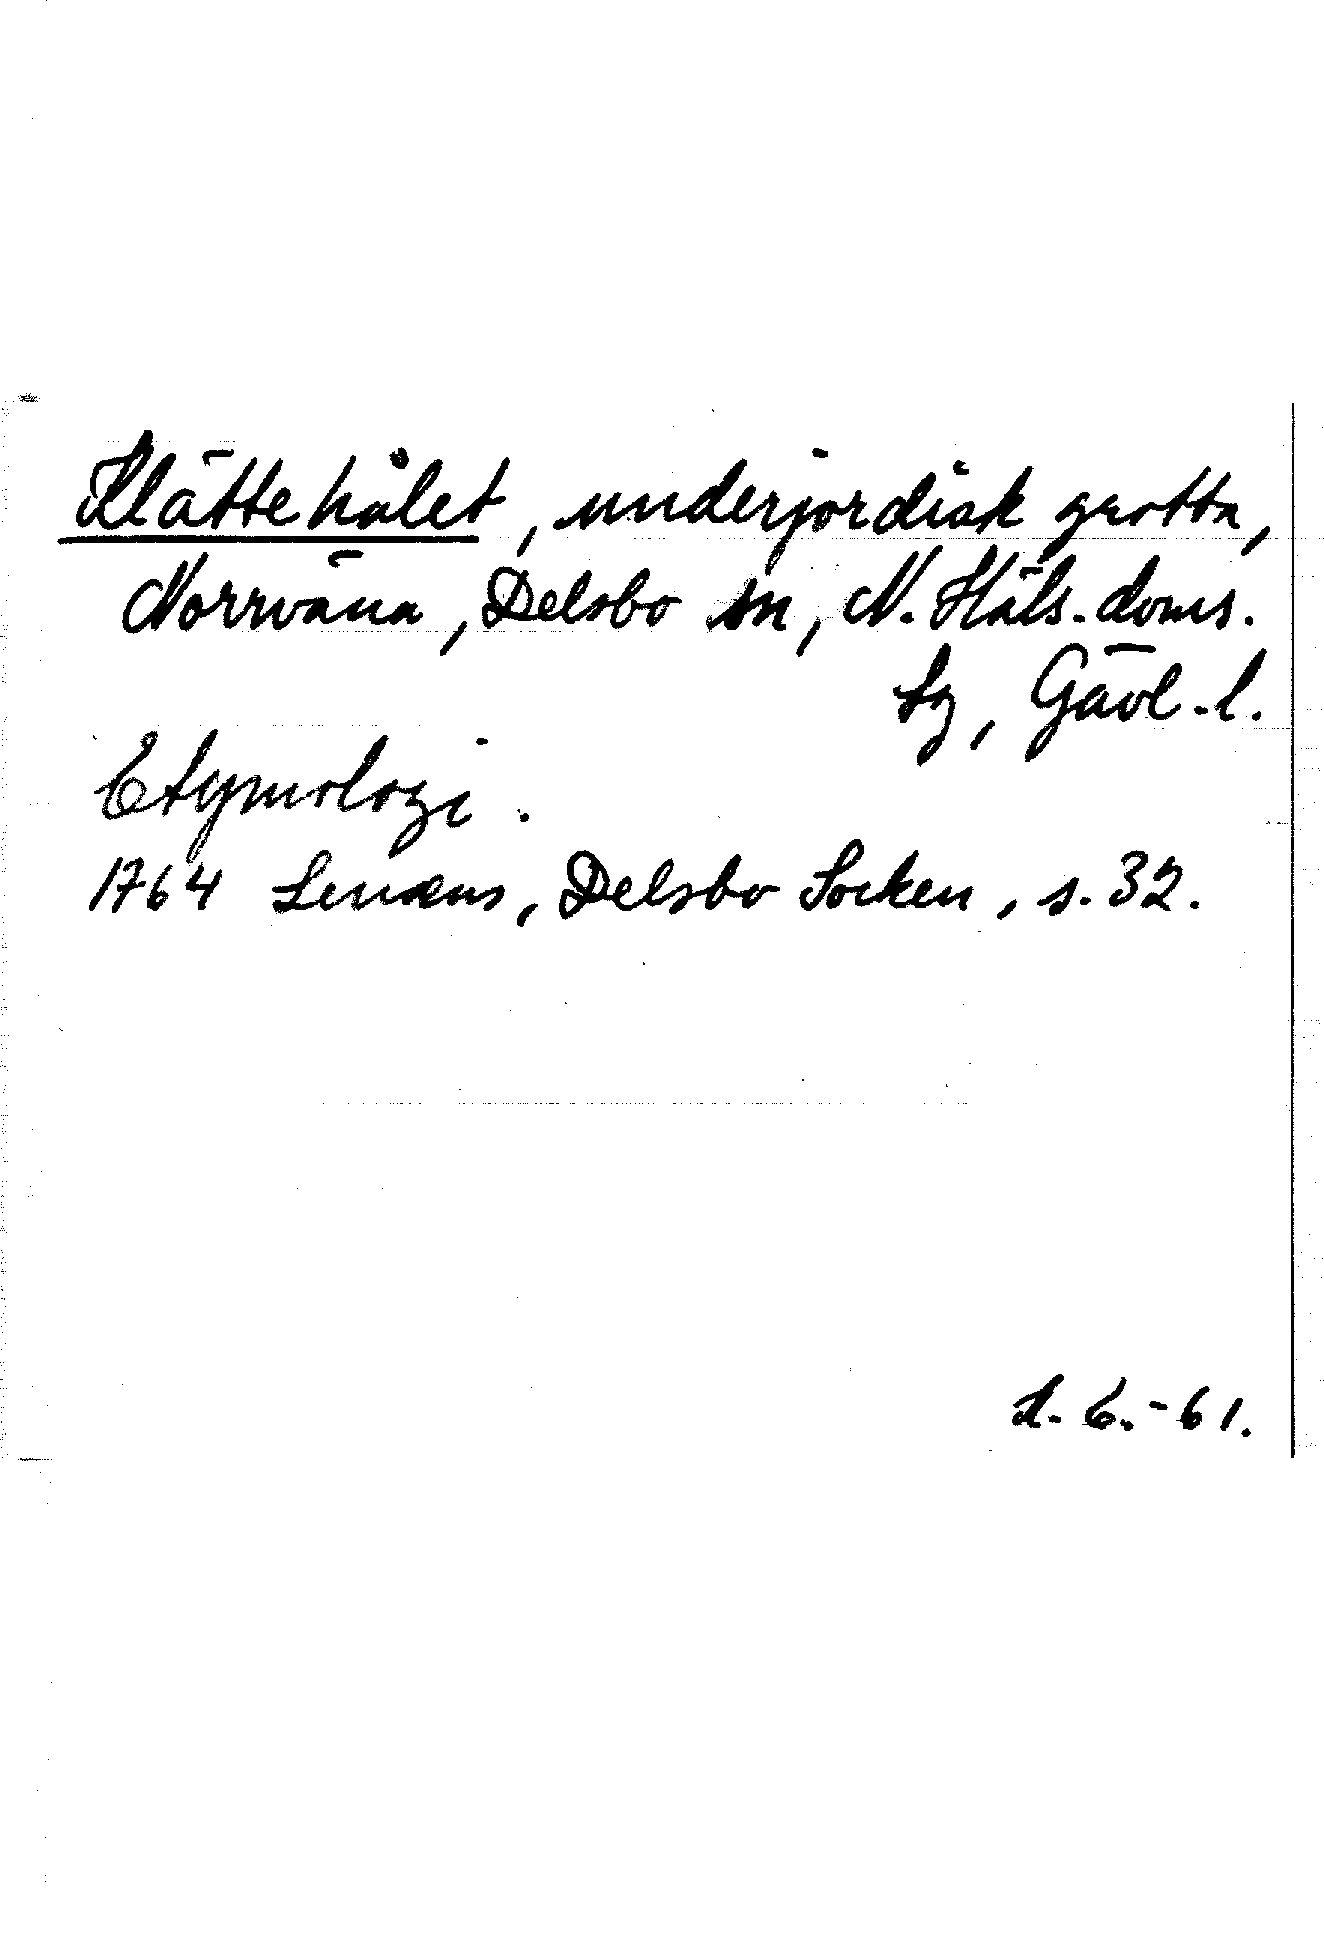 Klättehålet, underjordisk grotta,
Norrväna, Delsbo sn, N. Häls. doms.
sg, Gävl. l.
Etymologi.
1764 Lenæus, Delsbo Socken, s. 32.
d. 6. -61.